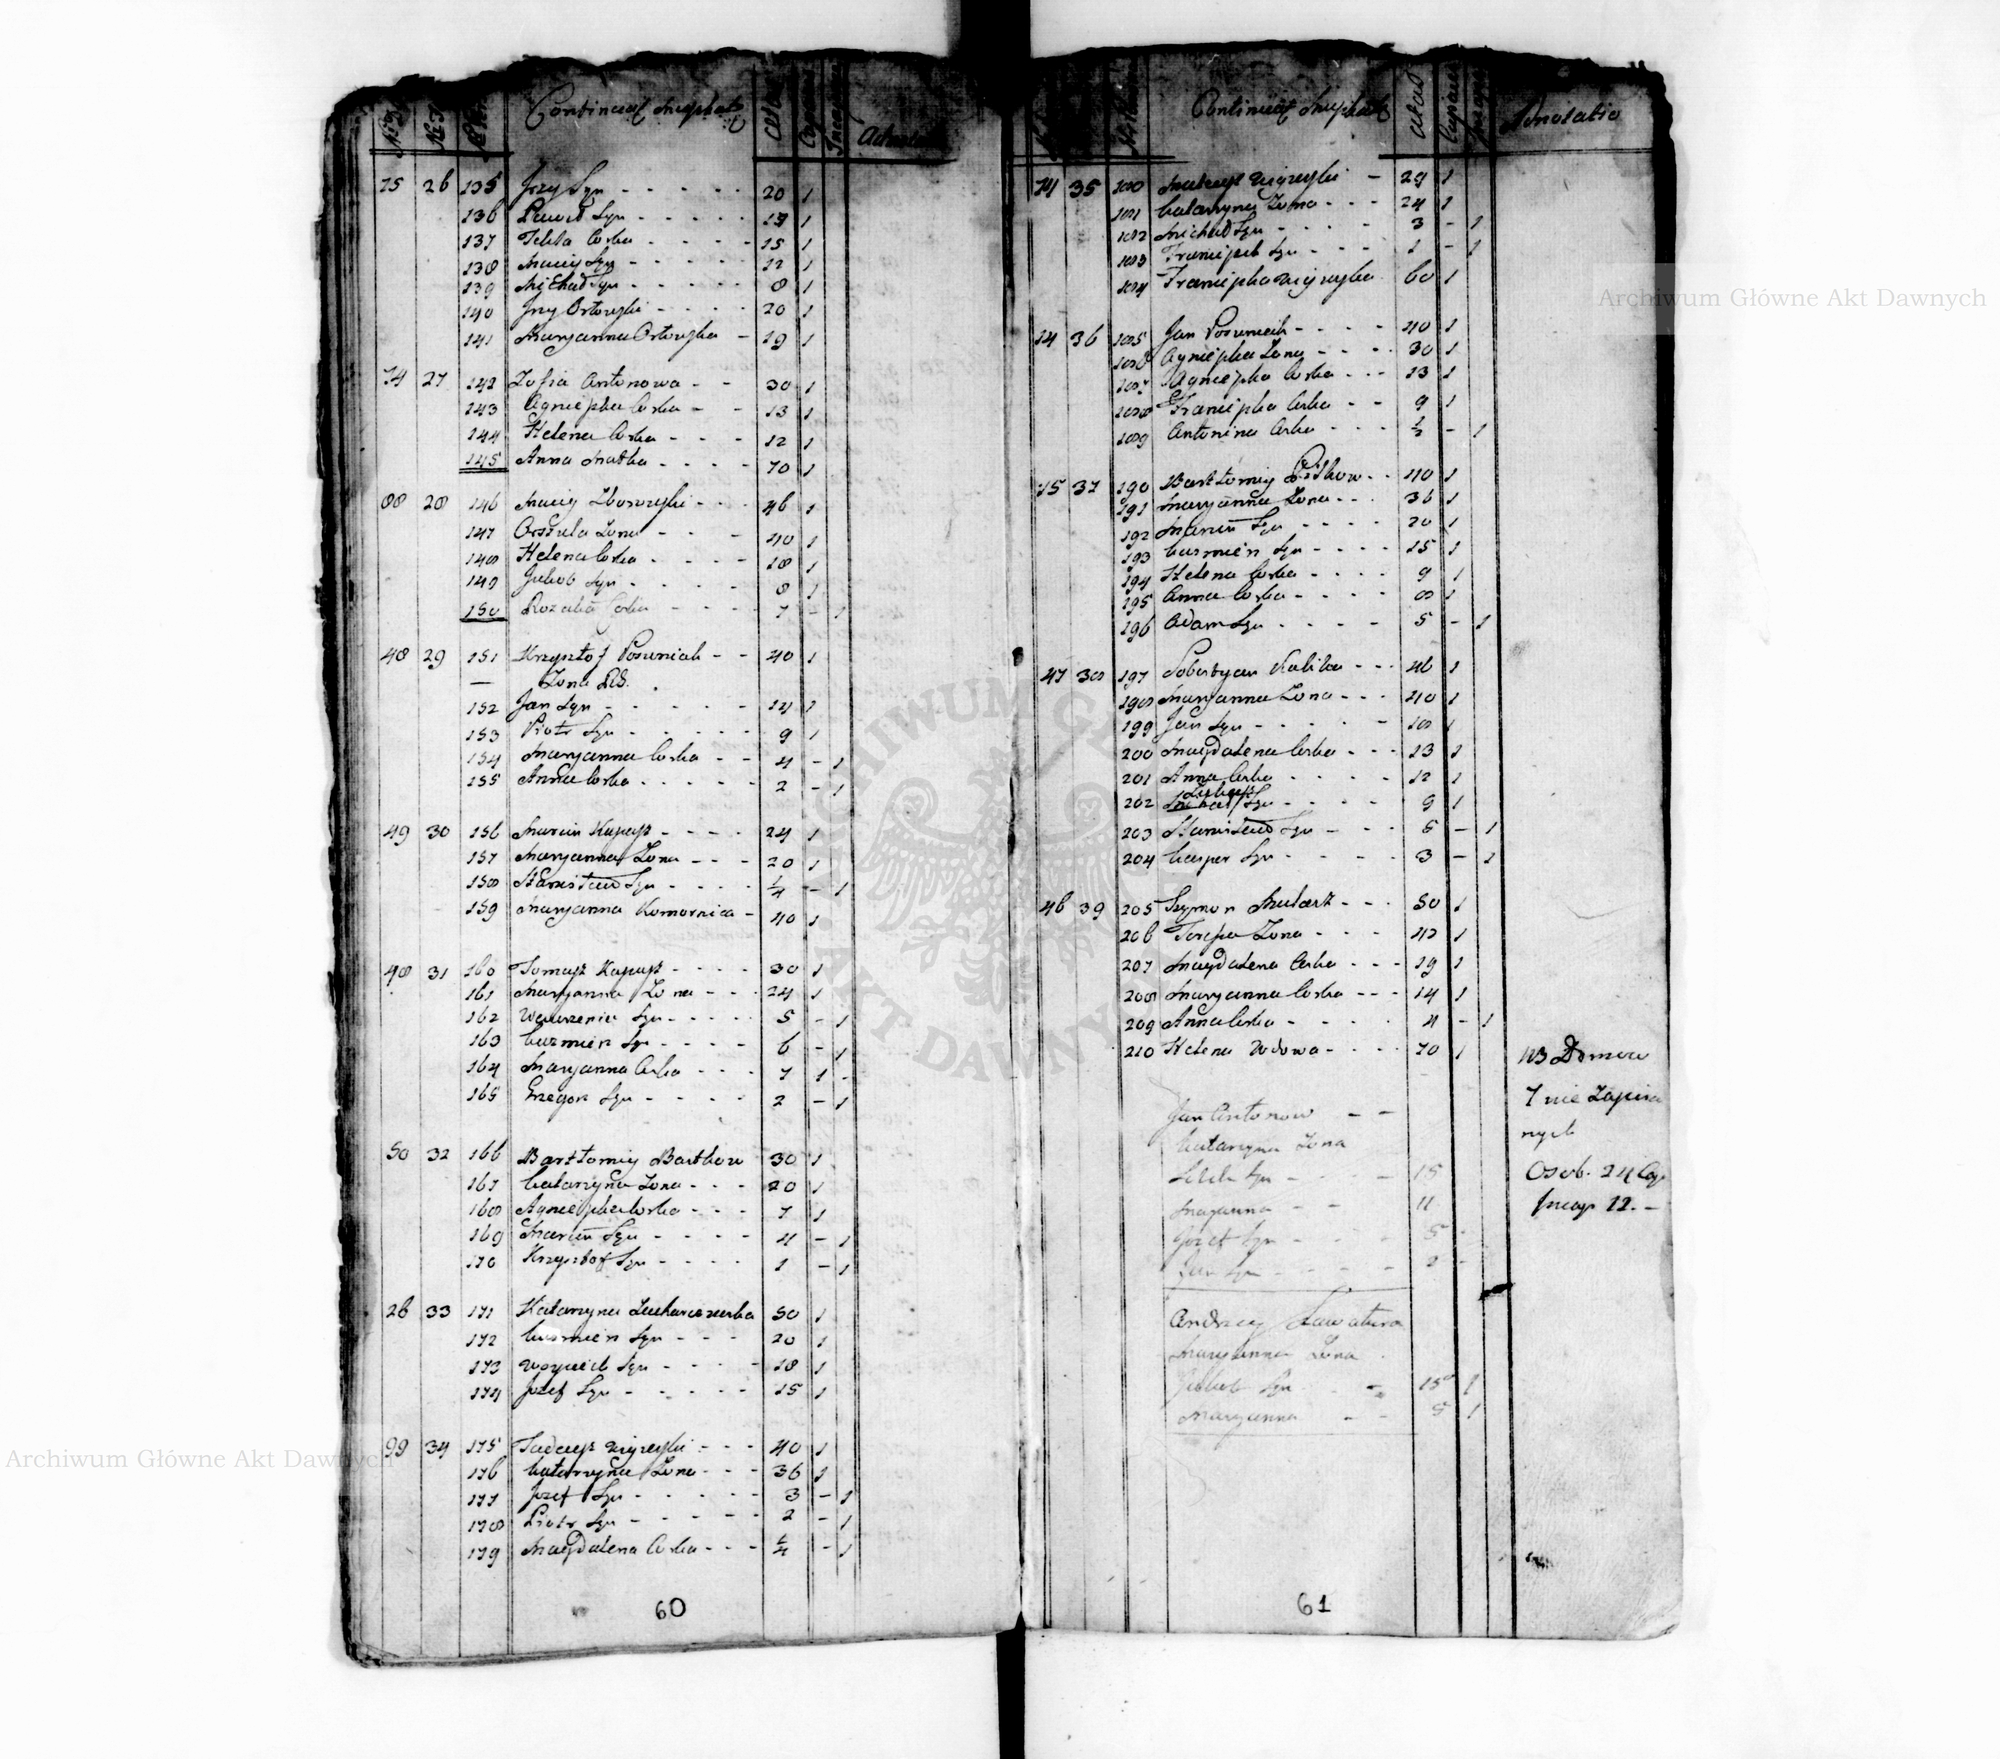 Aetas
75 26 135 Jrzy Syn - - - - - 20 1
136 Paweł Syn - - - - - 17 1
137 Tekla Corka - - - - - 15 1
138 Maciey Syn - - - - - 12 1
139 Michał Syn - - - - - 8 1
140 Jrzy - - - - 20 1
141 Maryanna - 19 1
74 27 142 Zofia Antonowa - - 30 1
143 Agnieszka Corka - - 13 1
144 Helena Corka - - - 12 1
145 Anna Matka - - - - 70 1
88 28 146 Maciey - - - 46 1
147 Orszula Zona - - - 40 1
148 Helena Corka - - - - 18 1
149 Jakob Syn - - - - - 8 1
150 Rozalia Corka - - - - 7 - 1
48 29 151 Krzysztof Posuniak - - 40 1
— Zona
152 Jan Syn - - - - - 14 1
153 Piotr Syn - - - - - 9 1
154 Maryanna Corka - - 4 - 1
155 Anna Corka - - - - - 2 - 1
49 30 156 Marcin Kapusz - - - - 24 1
157 Maryanna Zona - - - 20 1
158 Stanisław Syn - - - - 1/4 - 1
159 Maryanna Komornica - 40 1
48 31 160 Tomasz Kapusz - - - - 30 1
161 Maryanna Zona - - - 24 1
162 Syn - - - - 5 - 1
163 Syn - - - - 6 - 1
164 Maryanna Corka - - - 7 1 -
165 Grzegorz Syn - - - - 2 - 1
50 32 166 Bartłomiey Bartkow 30 1
167 Catarzyna Zona - - - 20 1
168 Agnieszka Corka - - - 7 1
169 Marcin Syn - - - - 4 - 1
170 Krzysztof Syn - - - - 1 - 1
26 33 171 Katarzyna 50 1
172 Syn - - - 20 1
173 Woyciech Syn - - - - 18 1
174 Jozef Syn - - - - - 15 1
99 34 175 Tadeusz - - - 40 1
176 Catarzyna Zona - - - 36 1
177 Jozef Syn - - - - - 3 - 1
178 Piotr Syn - - - - - 2 - 1
179 Magdalena Corka - - - 1/4 - 1
60
Aetas Annotatio
74 35 180 - 29 1
181 Catarzyna Zona - - - 24 1
182 Michał Syn - - - - 3 - 1
183 Franciszek Syn - - - 1 - 1
184 Franciszka 60 1
74 36 185 Jan Posuniak - - - - 40 1
186 Agnieszka Zona - - - 30 1
187 Agnieszka Corka - - - 13 1
188 Franciszka Corka - - 9 1
189 Antonina Corka - - - 1/2 - 1
75 37 190 Bartłomiey - - 40 1
191 Maryanna Zona - - - 36 1
192 Marcin Syn - - - - 20 1
193 Syn - - - - 15 1
194 Helena Corka - - - - 9 1
195 Anna Corka - - - - 8 1
196 Adam Syn - - - - 5 - 1
47 38 197 Sobestyan - - - 46 1
198 Maryanna Zona - - - 40 1
199 Jan Syn - - - - - 18 1
200 Magdalena Corka - - - 13 1
201 Anna Corka - - - - 12 1
202 Syn - - - - 9 1
203 Stanisław Syn - - - 5 - 1
204 Casper Syn - - - - 3 - 1
46 39 205 Szymon - - - 50 1
206 Zona - - - 42 1
207 Magdalena Corka - - - 19 1
208 Maryanna Corka - - - 14 1
209 Anna Corka - - - - 4 - 1
210 Helena Wdowa - - - - 70 1
NB Domow
7 nie Zapisa
nych
Osob. 24 Cap.
Incap 12. -
Jan Antonow - -
Catarzyna Zona
Syn - - - - 15
Maryanna - - 11
Jozef Syn - - - 5
Jan Syn - - - - 2
Andrzey
Maryanna Zona
Jakob Syn
Maryanna - - 5 1
61
Archiwum Główne Akt Dawnych
Archiwum Główne Akt Dawnych
ARCHIWUM GŁ · AKT DAWNYCH